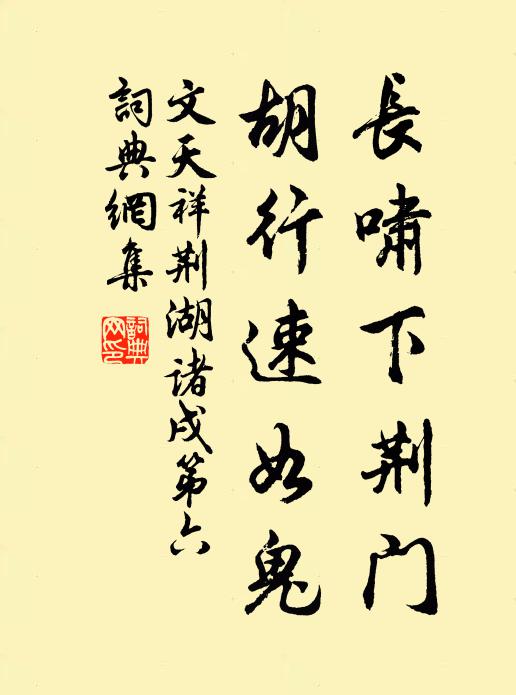 長嘯下荆门
胡行速如鬼
文天祥荆湖諸戍第六
詞典網集
詞典网印